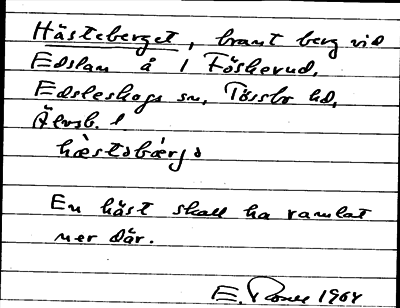 Hästeberget, brant berg vid
Edslan å i Töskerud,
Edsleskogs sn, Tössbo hd,
Älvsb. l
hæ̀stəbær̀jə
En häst skall ha ramlat
ner där.
E. 1964